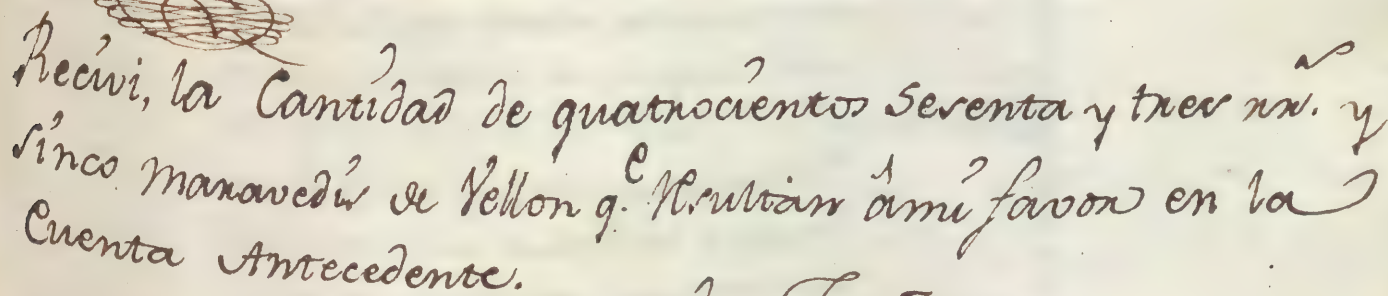 Recivi, la Cantidad de quatrocientos Sesenta y tres rr.s y
sinco maravedis de Vellon q.e Resultan â mi favor en la
Cuenta Antecedente.